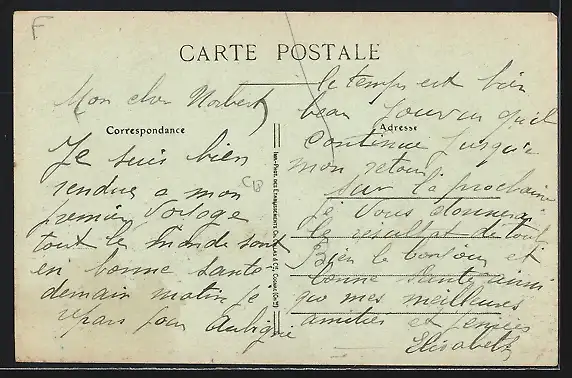 F
CARTE POSTALE
Mon cher Norbert
Correspondance
Je suis bien
rendue a mon
premier voyage
tout le monde sont
en bonne santé
demain matin je
repars pour Aubigné
CB
Imp.-Phot. des Etablissements & Cie, Cognac
le temps est bien
beau pourvu qu'il
Adresse
continue jusqu'a
mon retour
Sur la prochaine
je vous donnerai
le resultat de tout
Bien le bonjour et
bonne santé ainsi
que mes meilleures
amitiés et pensées
Elisabeth